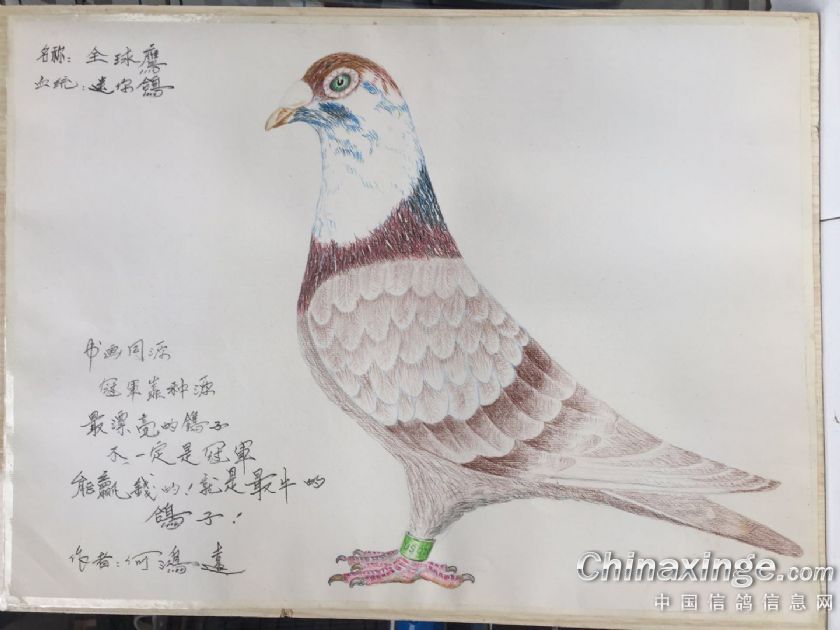 名称：全球鹰
血统：速尔鸽
书画同源
冠軍靠种源
最漂亮的鴿子
不一定是冠軍
能贏錢的！就是最牛的
鴿子！
作者：何鴻遠
Chinaxinge.com
中国信鸽信息网